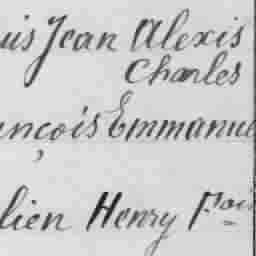 uis Jean Alexis
Charles
ançois Emmanue
lien Henry Fçois